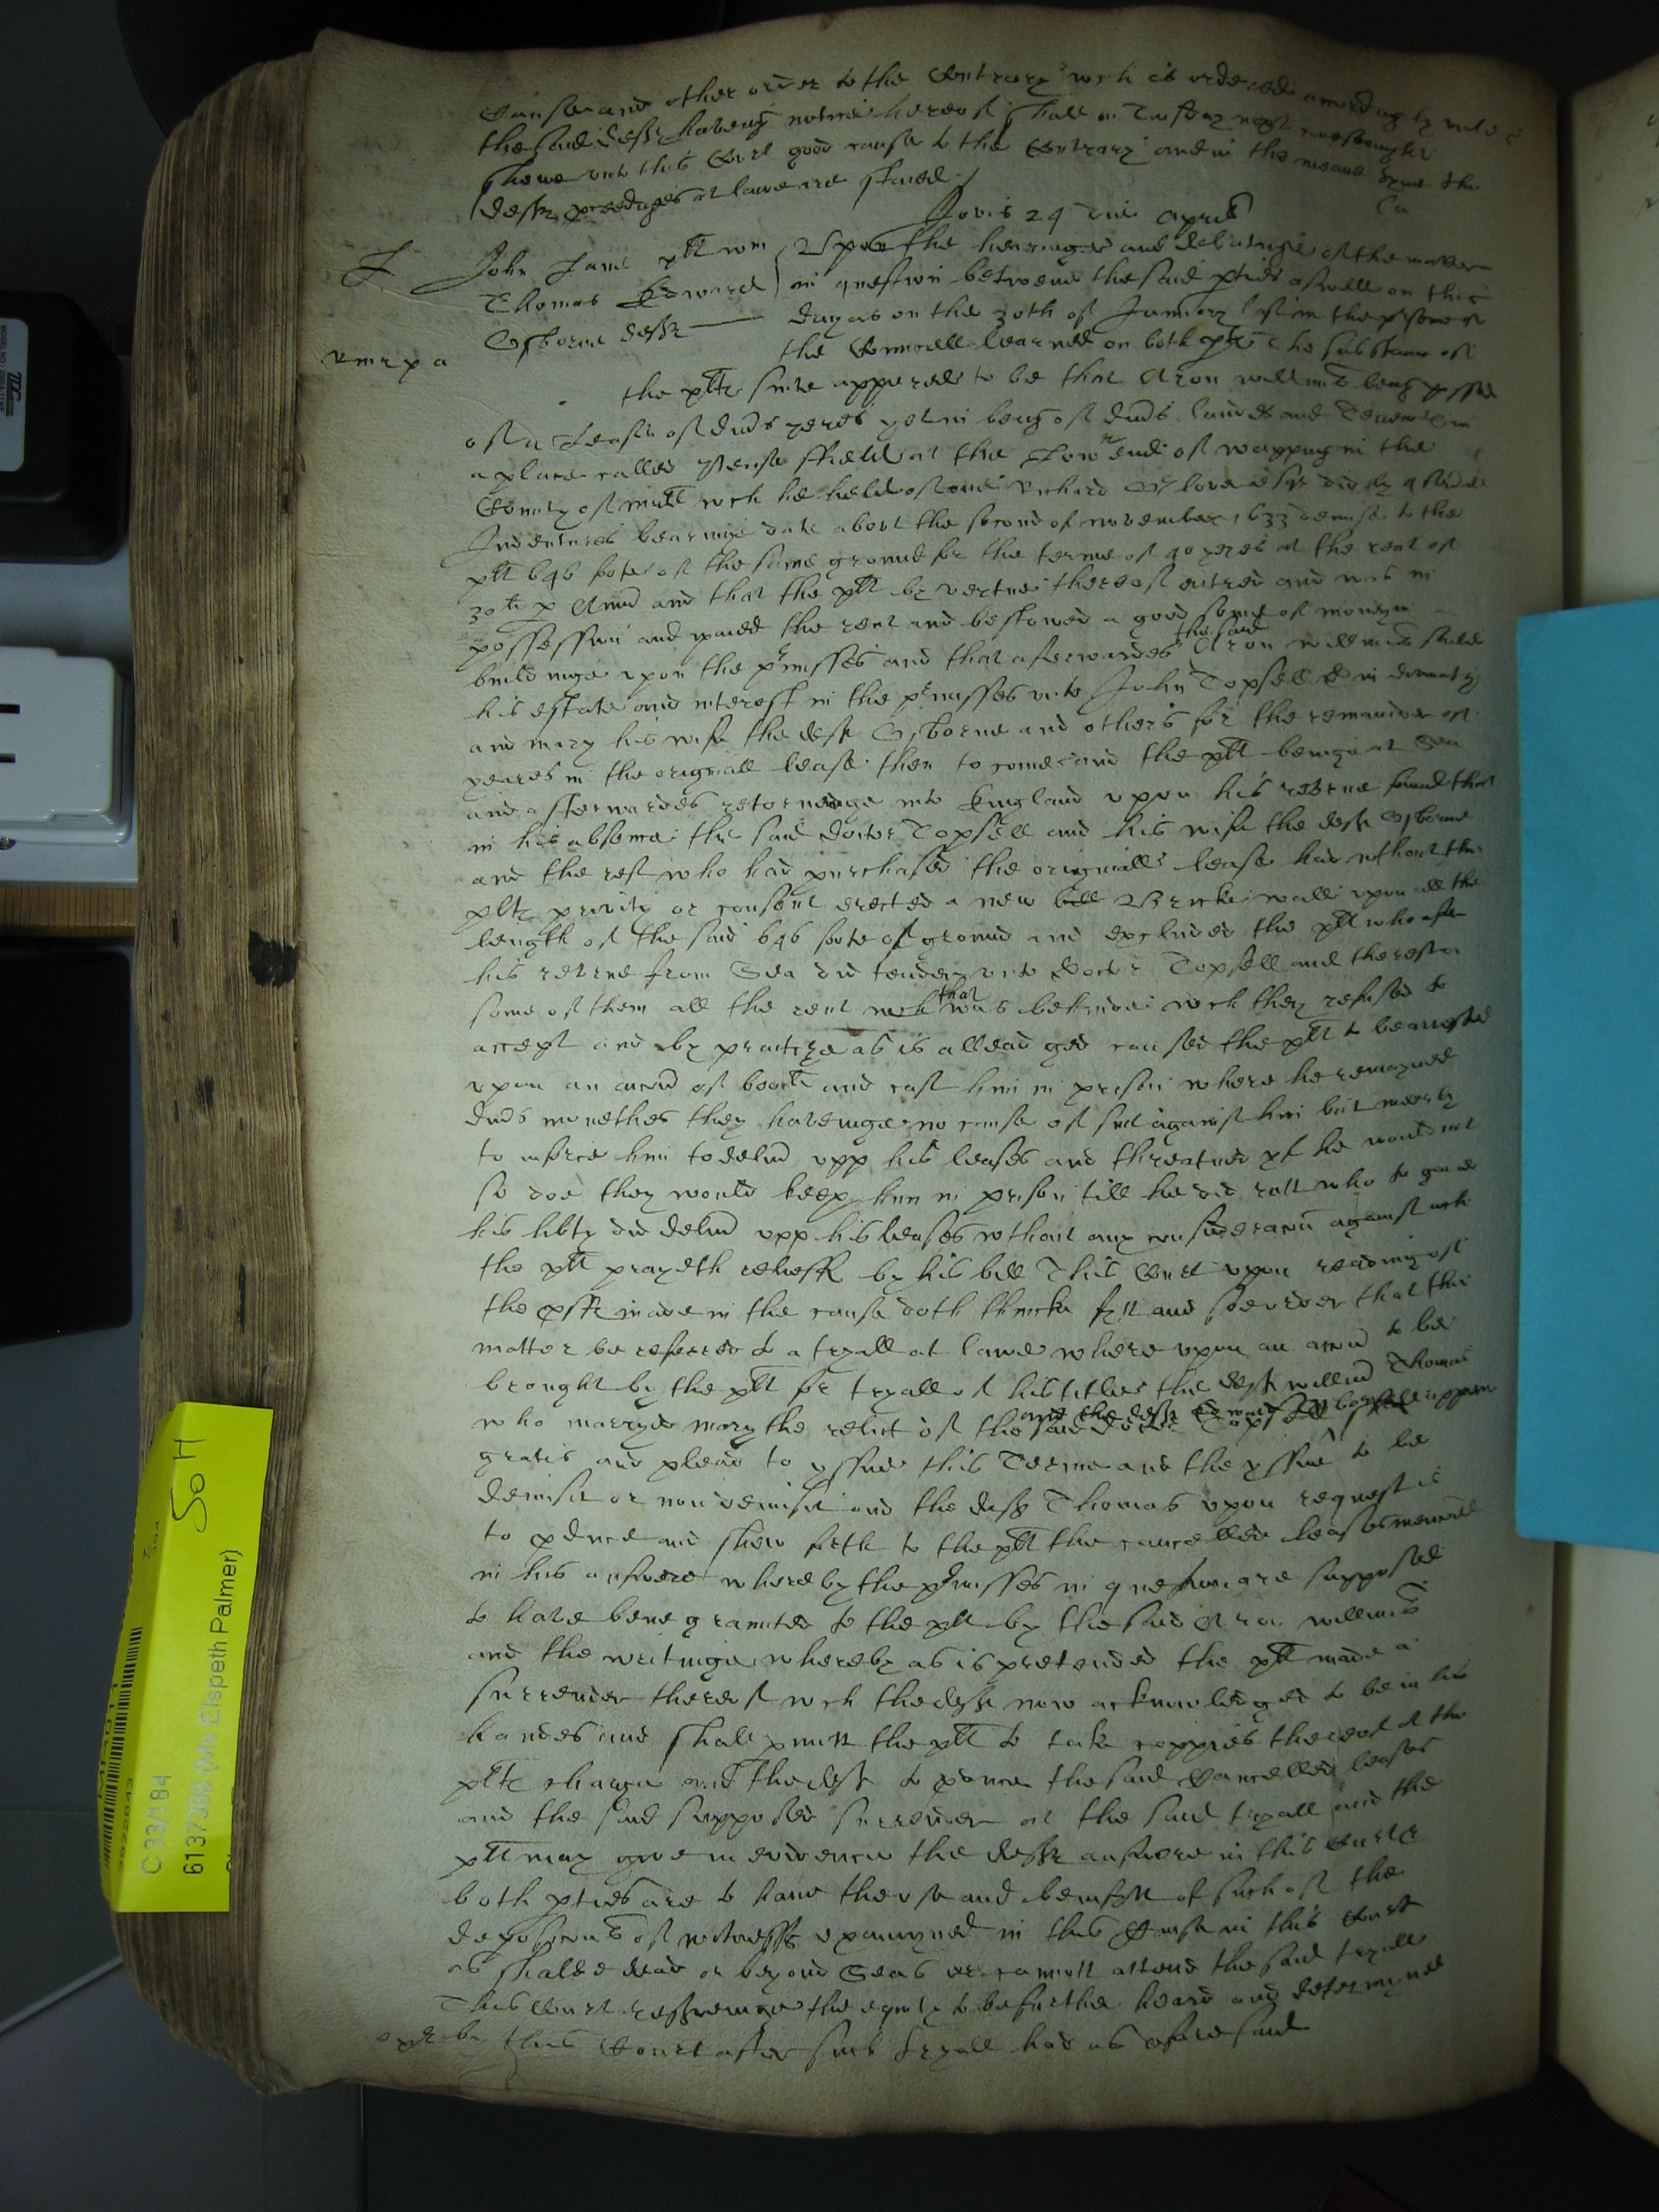 Cause and other order to the Contrary wch is ordered accordingly unles
the said defts haveing notice hereof shall on Tuseday next
shewe unto this Cort good cause to the Contrary and in the meane tyme the
defts proceedings at lawe are stayed
Jovis 24 die Aprilis
John Jame plt Wm
Thomas Edward
Osborne defts
Upon the hearinge and debatinge of the matter
in question betweene the said pties aswell on this
day as on the 30th of January last in the psence of
the Councell learned on both ptes The substance of
the plts suite appeared to be that Aron Williams being possessed
of a Lease of divs yeres yet in being of divs landes and Tenemts in
a place called ffield at the Lower end of Wapping in the
County of Midd wch he held of one Richard esqr did by
Indentures bearinge date about the second of November 1633 demise to the
plt 646 foote of the same ground for the terme of 40 yeres at the rent of
30li p Annu and that the plt by vertue thereof entred and was in
possession and payed the rent and bestowed a good some of money in
buildinge upon the pmisses and that afterwardes the said Aron Williams sould
his estate and interest in the pmisses unto John Topsell in divinity
and Mary his wife the deft Osborne and others for the remainder of
yeares in the originall lease then to come and the plt beinge at Sea
and afterwardes retorneinge into England upon his retorne found that
in his absence the said doctor Topsell and his wife the deft Osborne
and the rest who had purchased the originall lease had without the
plts privity or consent erected a new Bricke wall upon all the
length of the said 646 foote of ground and excluded the plt who after
his retorne from Sea did tender unto doctor Topsell and the rest or
some of them all the rent wch that was behinde wch they refused to
accept and by practize as is alleadged caused the plt to be arrested
upon an accon of and cast him in prison where he remayned
divs monethes they haveinge no cause of suit against him but meerly
to inforce him to deliv upp his leases and threatned yf he would not
so doe they would keep him in prison till he did rott who to gaine
his libty did deliv upp his leases without any consideracon against wch
the plt prayeth releeff by his bill This Cort upon readinge of
the pffs made in the cause doth thincke fitt and soe order that the
matter be referred to a tryall at lawe where upon an accon to be
brought by the plt for tryall of his title the deft Willm Thomas
who marryed Mary the relict of the said doctor Topsell and the deft Edward Osborne shall appeare
gratis and plead to yssue this Terme and the yssue to be
demisit or non demisit and the deft Thomas upon request is
to pduce and shew forth to the plt the cancelled leases menconed
in his answere whereby the pmisses in question are supposed
to have bene graunted to the plt by the said Aron Williams
and the writinge whereby as is pretended the plt made a
surrender thereof wch the deft now acknowledged to be in his
handes and shall pmitt the plt to take coppies thereof at the
plts charge and the deft to pduce the said Cancelled leases
and the said supposed surrender at the said tryall and the
plt may give in evidence the defts answere in this Court &
both pties are to have the use and benefitt of such of the
deposicons of witnesses examyned in this Cause in this Court
as shalbe dead or beyond Seas or cannott attend the said tryall
This Court reserveinge the equity to be further heard and determyned
by this Court after such tryall had as aforesaid
C 33/184
6137385 (Ms Elspeth Palmer)
So H